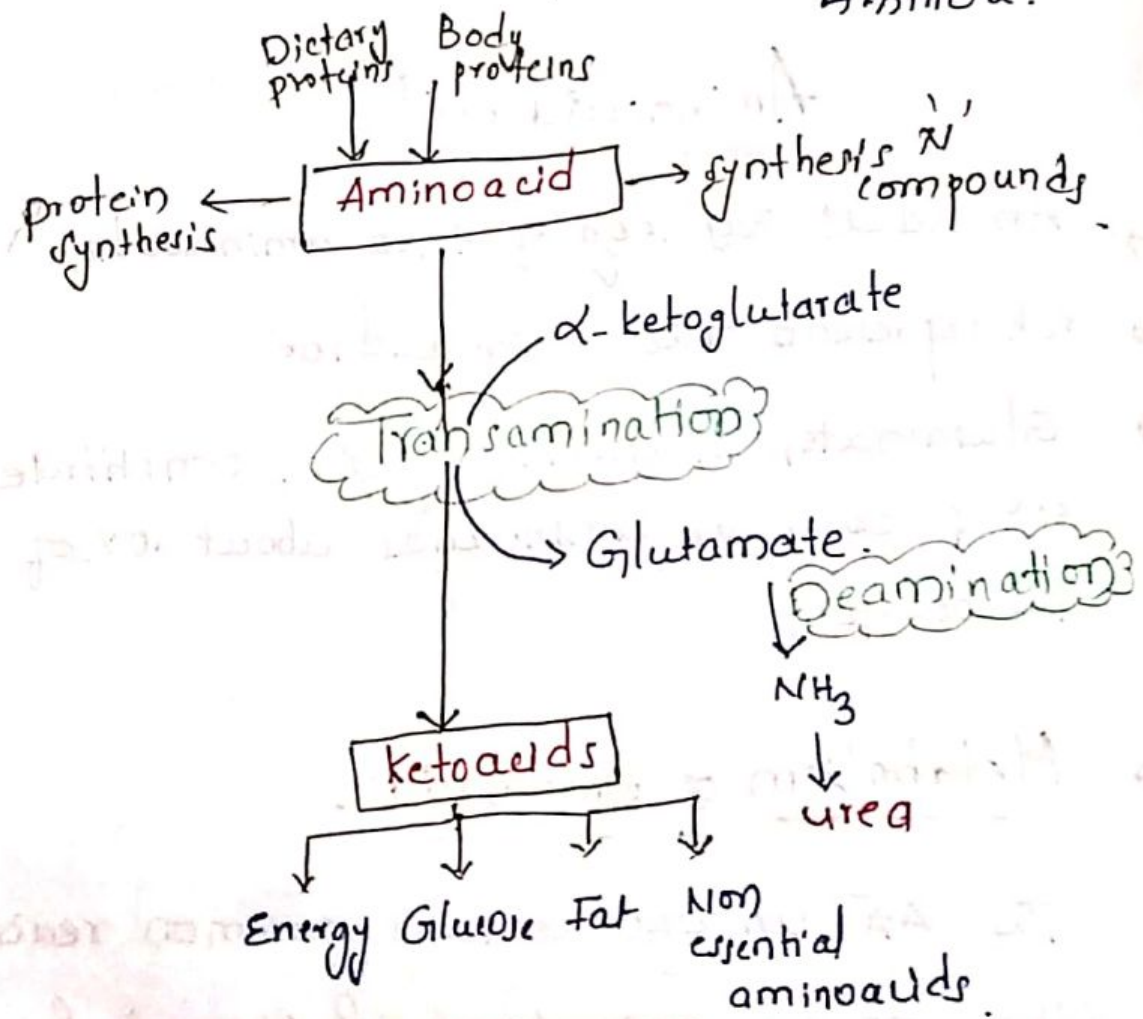 Dietary proteins
Body proteins
Aminoacid
protein synthesis
synthesis 'N' compounds.
α-ketoglutarate
Transamination
Glutamate.
Deamination
NH₃
urea
Ketoacids
Energy Glucose Fat Non
essential
aminoacids.